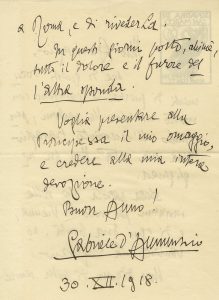 a Roma, e di rivederLa.
In questi giorni porto, ahimè,
tutto il dolore e il furore del
l'altra sponda.
Voglia presentare alla
Principessa il mio omaggio,
e credere alla mia intera
devozione.
Buon Anno!
Gabriele d'Annunzio
30. XII. 1918.